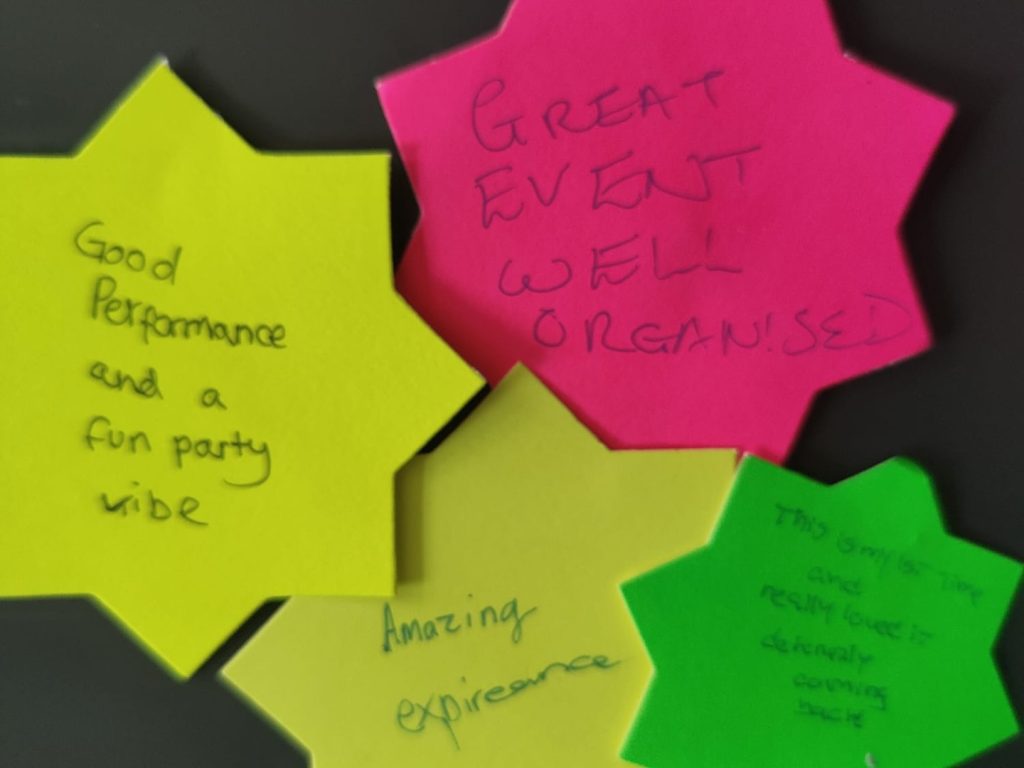 GREAT
EVENT
WELL
ORGANISED
Good
Performance
and a
fun party
vibe
Amazing
expireance
This is my 1st Time
and
really loved it
definealy
coming
back